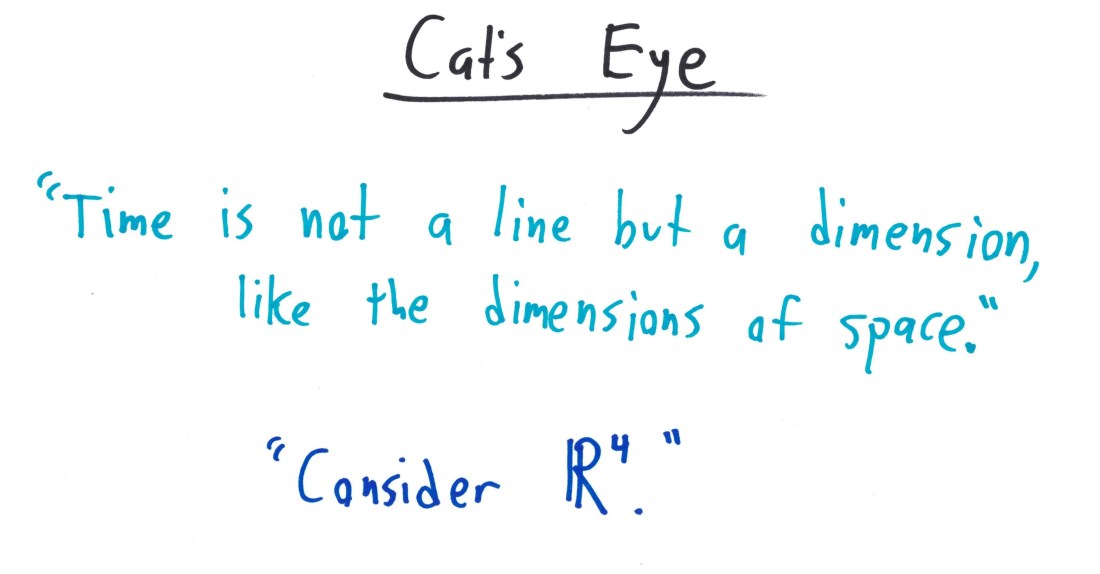 Cat's Eye
"Time is not a line but a dimension,
like the dimensions of space."
"Consider ℝ⁴."